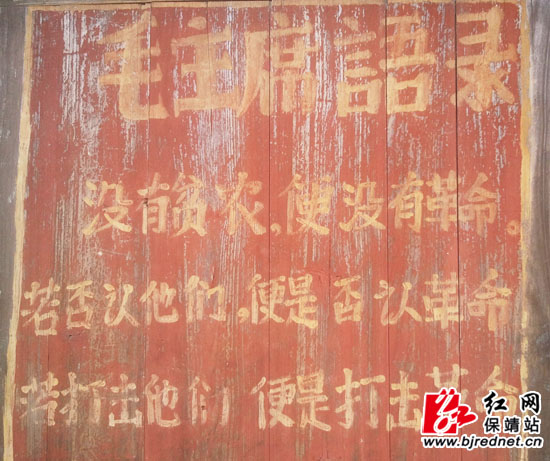 毛主席語录
没有贫农,便没有革命。
若否认他们,便是否认革命
若打击他们 便是打击革命
红网
保靖站
www.bjrednet.cn